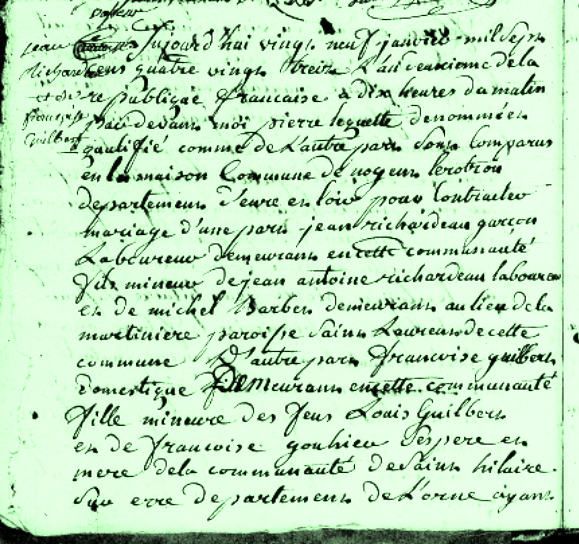 jean
Richard
et de
françoise
Guilbert
Aujourd'hui vingt neuf janvier mil sept
cens quatre vingt treize L'an deuxieme de la
republique francaise a dix heures du matin
par devant moi pierre lequette denommé et
qualifié comme de L'autre part Sont Comparus
en la maison Commune de nogent lerotrou
departement d'eure en loir pour Contracter
mariage d'une part jean richardeau garçon
Laboureur demeurant en cette communauté
fils mineur de jean antoine richardeau laboureur
et de michel Barbet demeurant au lieu de la
martiniere paroisse Saint Laurent de cette
commune D'autre part francoise guilbert
domestique demeurant en cette communauté
fille mineure des feus Louis Guilbert
et de francoise gouhier Ses pere et
mere de la communauté de Saint hilaire
Sur erre departement de L'orne ayant